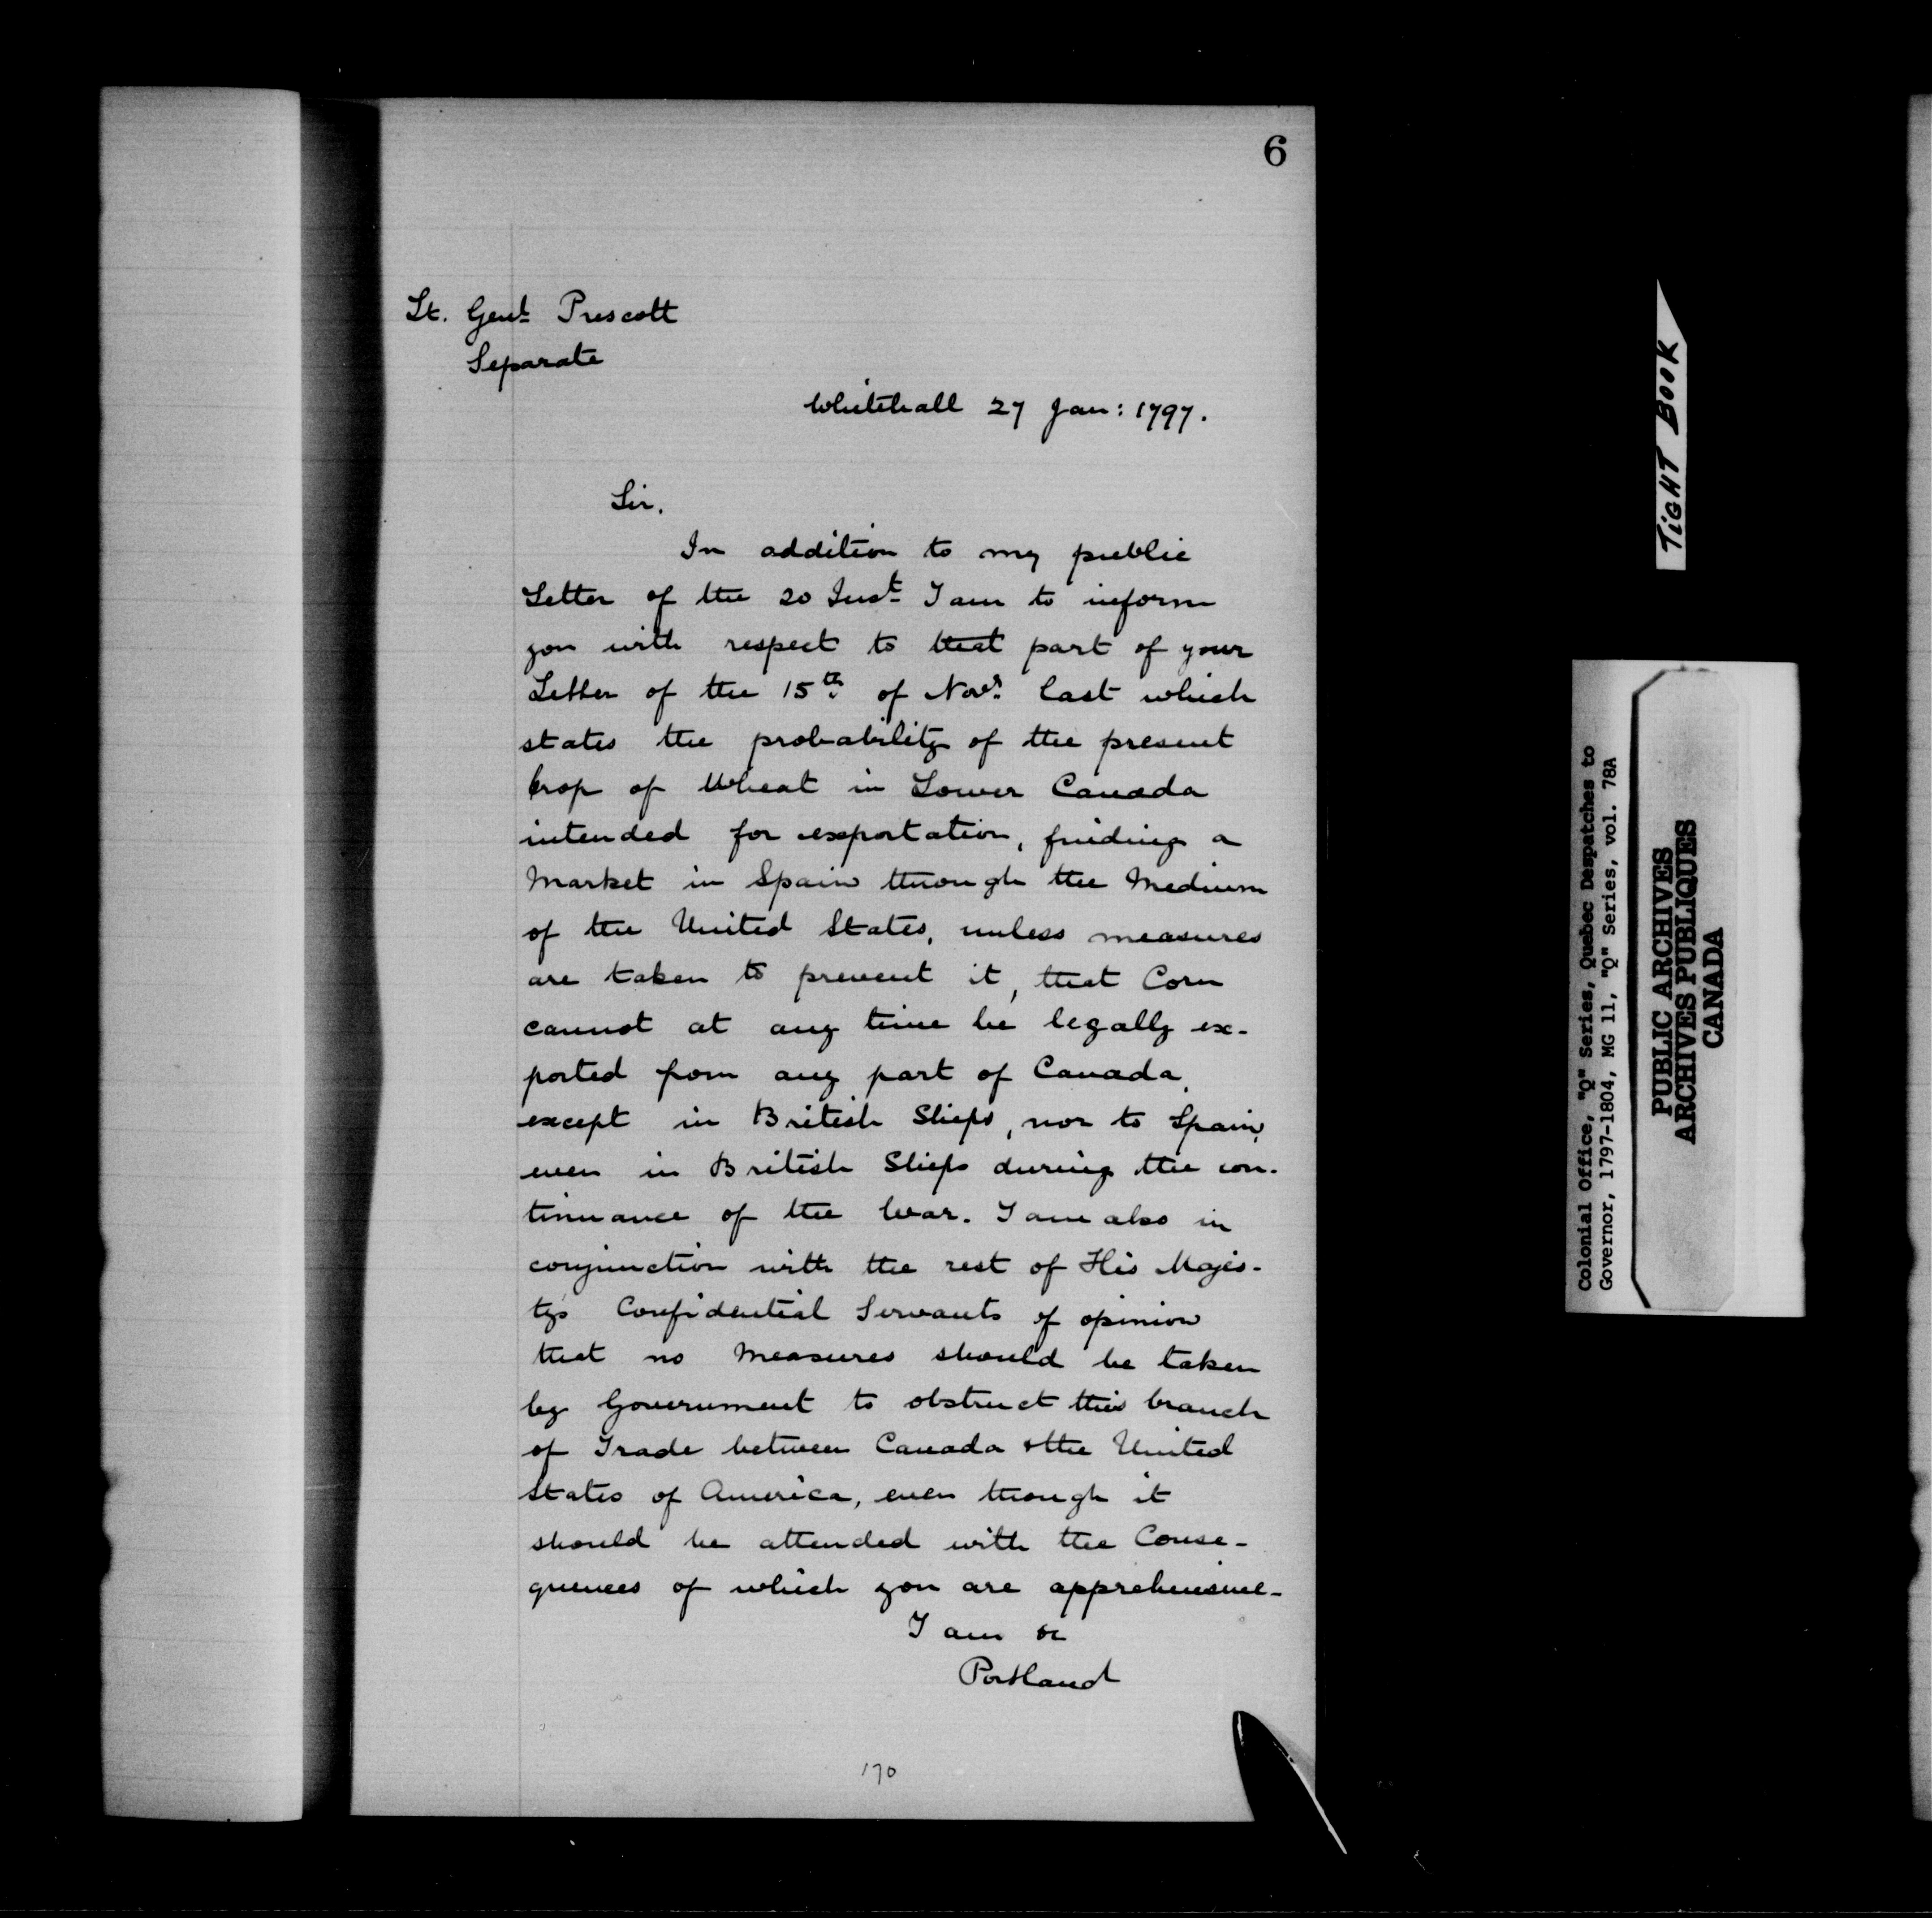 6
Lt. Genl. Prescott
Separate
Whitehall 27 Jan: 1797.
Sir.
In addition to my public
Letter of the 20 Inst. I am to inform
you with respect to that part of your
Letter of the 15th. of Novr. last which
states the probability of the present
Crop of Wheat in Lower Canada
intended for exportation, finding a
Market in Spain through the Medium
of the United States, unless measures
are taken to prevent it, that Corn
cannot at any time be legally ex-
ported from any part of Canada,
except in British Ships, nor to Spain,
even in British Ships during the con-
tinuance of the War. I am also in
conjunction with the rest of His Majes-
ty's Confidential Servants of opinion
that no Measures should be taken
by Government to obstruct this branch
of Trade between Canada & the United
States of America, even though it
should be attended with the Conse-
quences of which you are apprehensive-
I am &c
Portland
170
TIGHT BOOK
Colonial Office, "Q" Series, Quebec Despatches to
Governor, 1797-1804, MG 11, "Q" Series, vol. 78A
PUBLIC ARCHIVES
ARCHIVES PUBLIQUES
CANADA